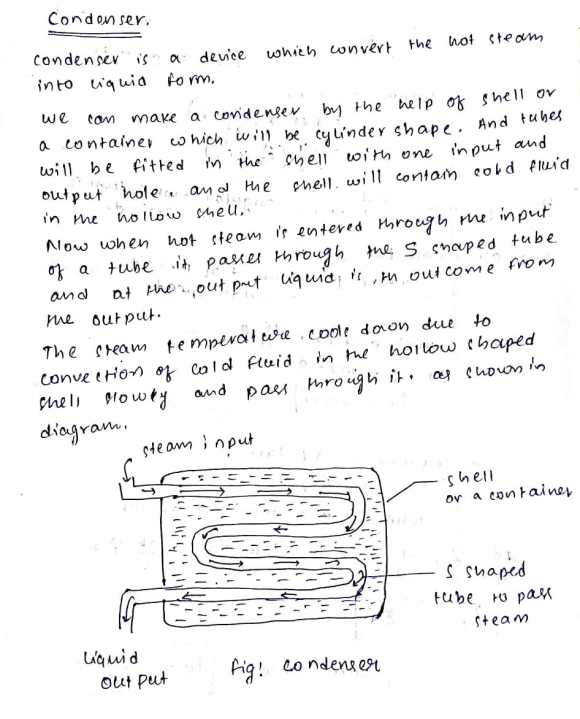 Condenser.
condenser is a device which convert the hot steam
into liquid form.
we can make a condenser by the help of shell or
a container which will be cylinder shape. And tubes
will be fitted in the shell with one input and
output hole. and the shell will contain cold fluid
in the hollow shell.
Now when hot steam is entered through the input
of a tube it passes through the S shaped tube
and at the output liquid is outcome from
the output.
The steam temperature cools down due to
convection of cold fluid in the hollow shaped
shell slowly and pass through it. as shown in
diagram.
steam input
shell
or a container
S shaped
tube to pass
steam
liquid
output
fig! condenser